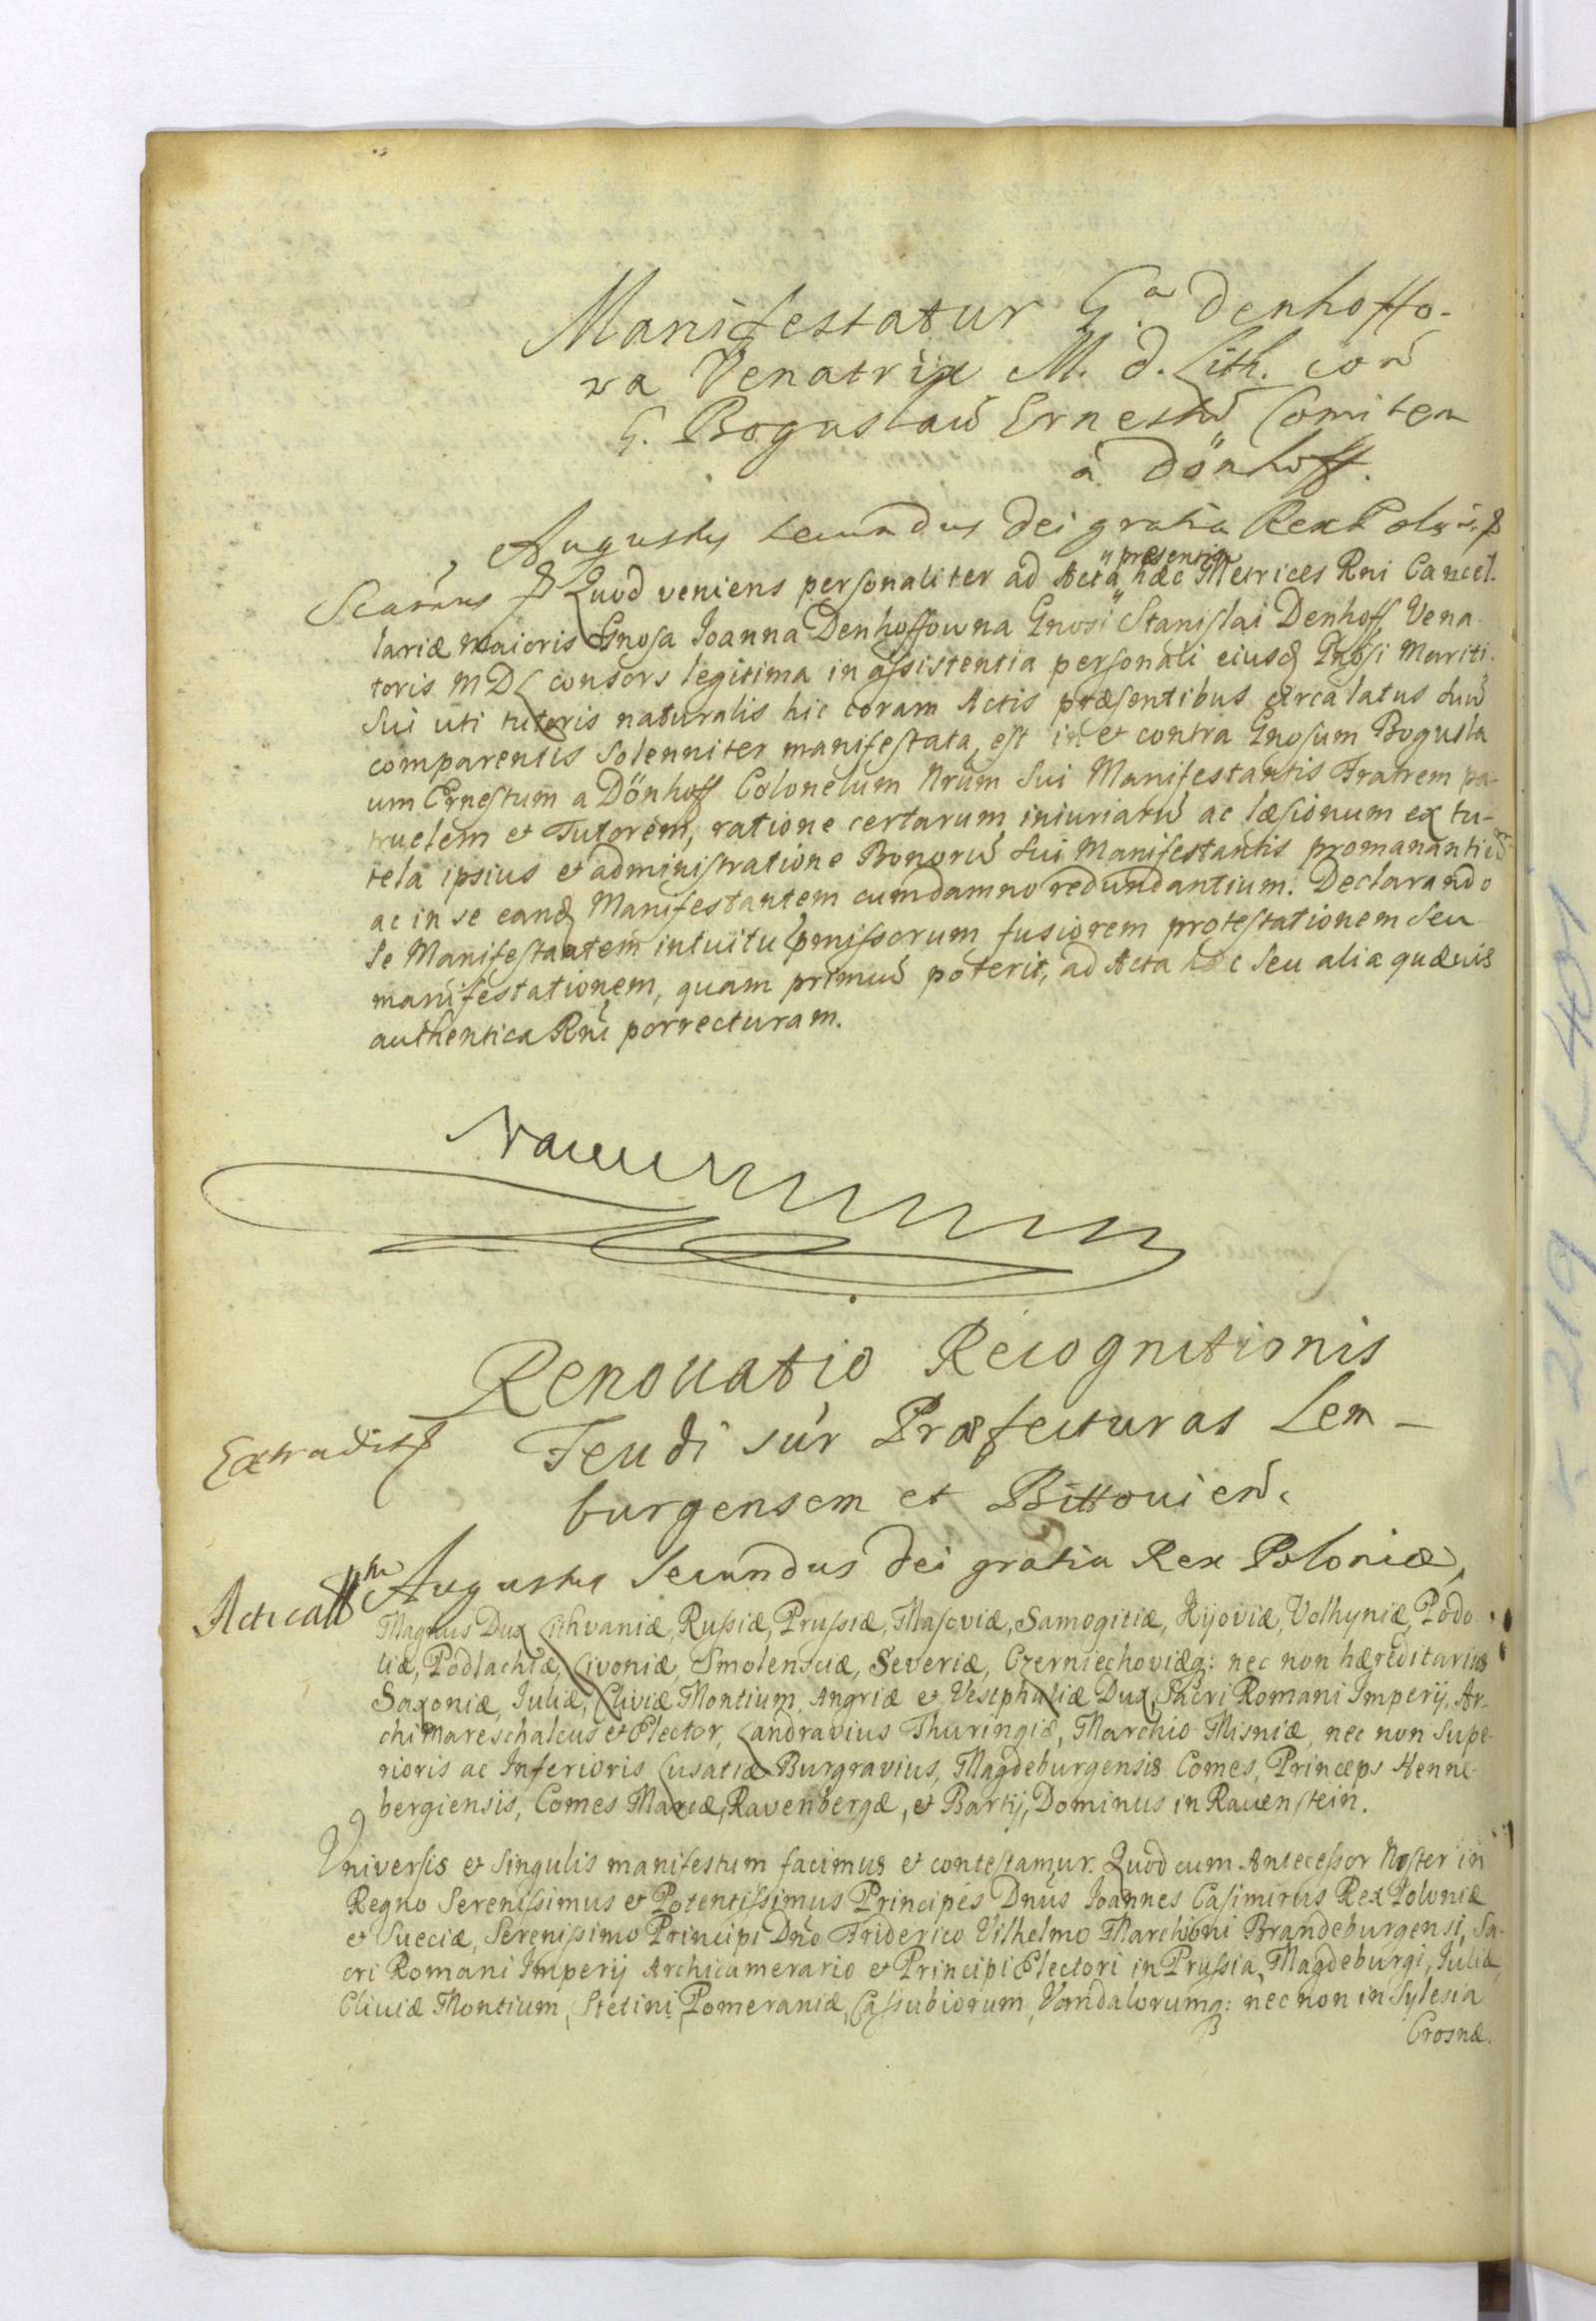 Manifestatur G.a Denhoffo-
wa Venatrix M. D. Lith. con
G. Boguslaū Ernestū Comitem
à Dönhoff.
Augustus Secundus Dei gratia Rex Poloniæ
præsentia
Quod veniens personaliter ad Acta hæc Metrices Rni Cancel-
lariæ maioris Gnosa Joanna Denhoffowna Gnosi Stanislai Denhoff Vena-
toris MDL consors legitima in assistentia personali eiusdʒ Gnosi Mariti
sui uti tutoris naturalis hic coram Actis præsentibus circa latus suū
comparentis solenniter manifestata est in et contra Gnosum Bogusla
um Ernestum a Dönhoff Colonelum Nrūm sui Manifestantis Fratrem pa-
truelem et Tutorem, ratione certarum iniuriarū ac læsionum ex tu-
tela ipsius et administratione Bonorū sui Manifestantis promanantiū
ac in se eandʒ Manifestantem cum damno redundantium. Declarando
se Manifestantem intuitu pmissorum fusiorem protestationem seu
manifestationem, quam primū poterit, ad Acta hæc seu alia quævis
authentica Rni porrecturam.
Renouatio Recognitionis
Feudi sūr Præfecturas Lem-
Extradit
burgensem et Bittouien̄.
Augustus Secundus Dei gratia Rex Poloniæ,
Magnus Dux Lithvaniæ, Russiæ, Prussiæ, Masoviæ, Samogitiæ, Kijoviæ, Volhyniæ, Podo-
liæ, Podlachiæ, Livoniæ, Smolensciæ, Severiæ, Czerniechoviæq: nec non hæreditarius
Saxoniæ, Iuliæ, Cliviæ Montium, Angriæ et Vestphaliæ Dux, Sacri Romani Imperij, Ar-
chimareschalcus et Elector, Landravius Thuringiæ, Marchio Misniæ, nec non Supe-
rioris ac Inferioris Lusatiæ Burgravius, Magdeburgensis Comes, Princeps Henne-
bergiensis, Comes Marcæ, Ravenbergæ, et Bartij, Dominus in Rauenstein.
Universis et singulis manifestum facimus et contestamur. Quod cum Antecessor Noster in
Regno Serenissimus et Potentissimus Principes Dnūs Joannes Casimirus Rex Poloniæ
et Sueciæ, Serenissimo Principi Dno Friderico Vilhelmo Marchioni Brandeburgensi, Sa-
cri Romani Imperij Archicamerario et Principi Electori in Prussia, Magdeburgi, Iuliæ,
Cliuiæ Montium, Stetini, Pomeraniæ, Cassubiorum, Vandalorumq: nec non in Sylesia
Crosnæ.